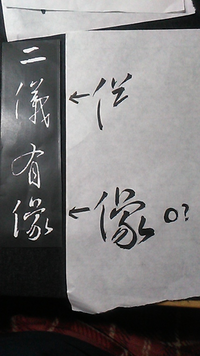 二儀有像
←
←像 O?